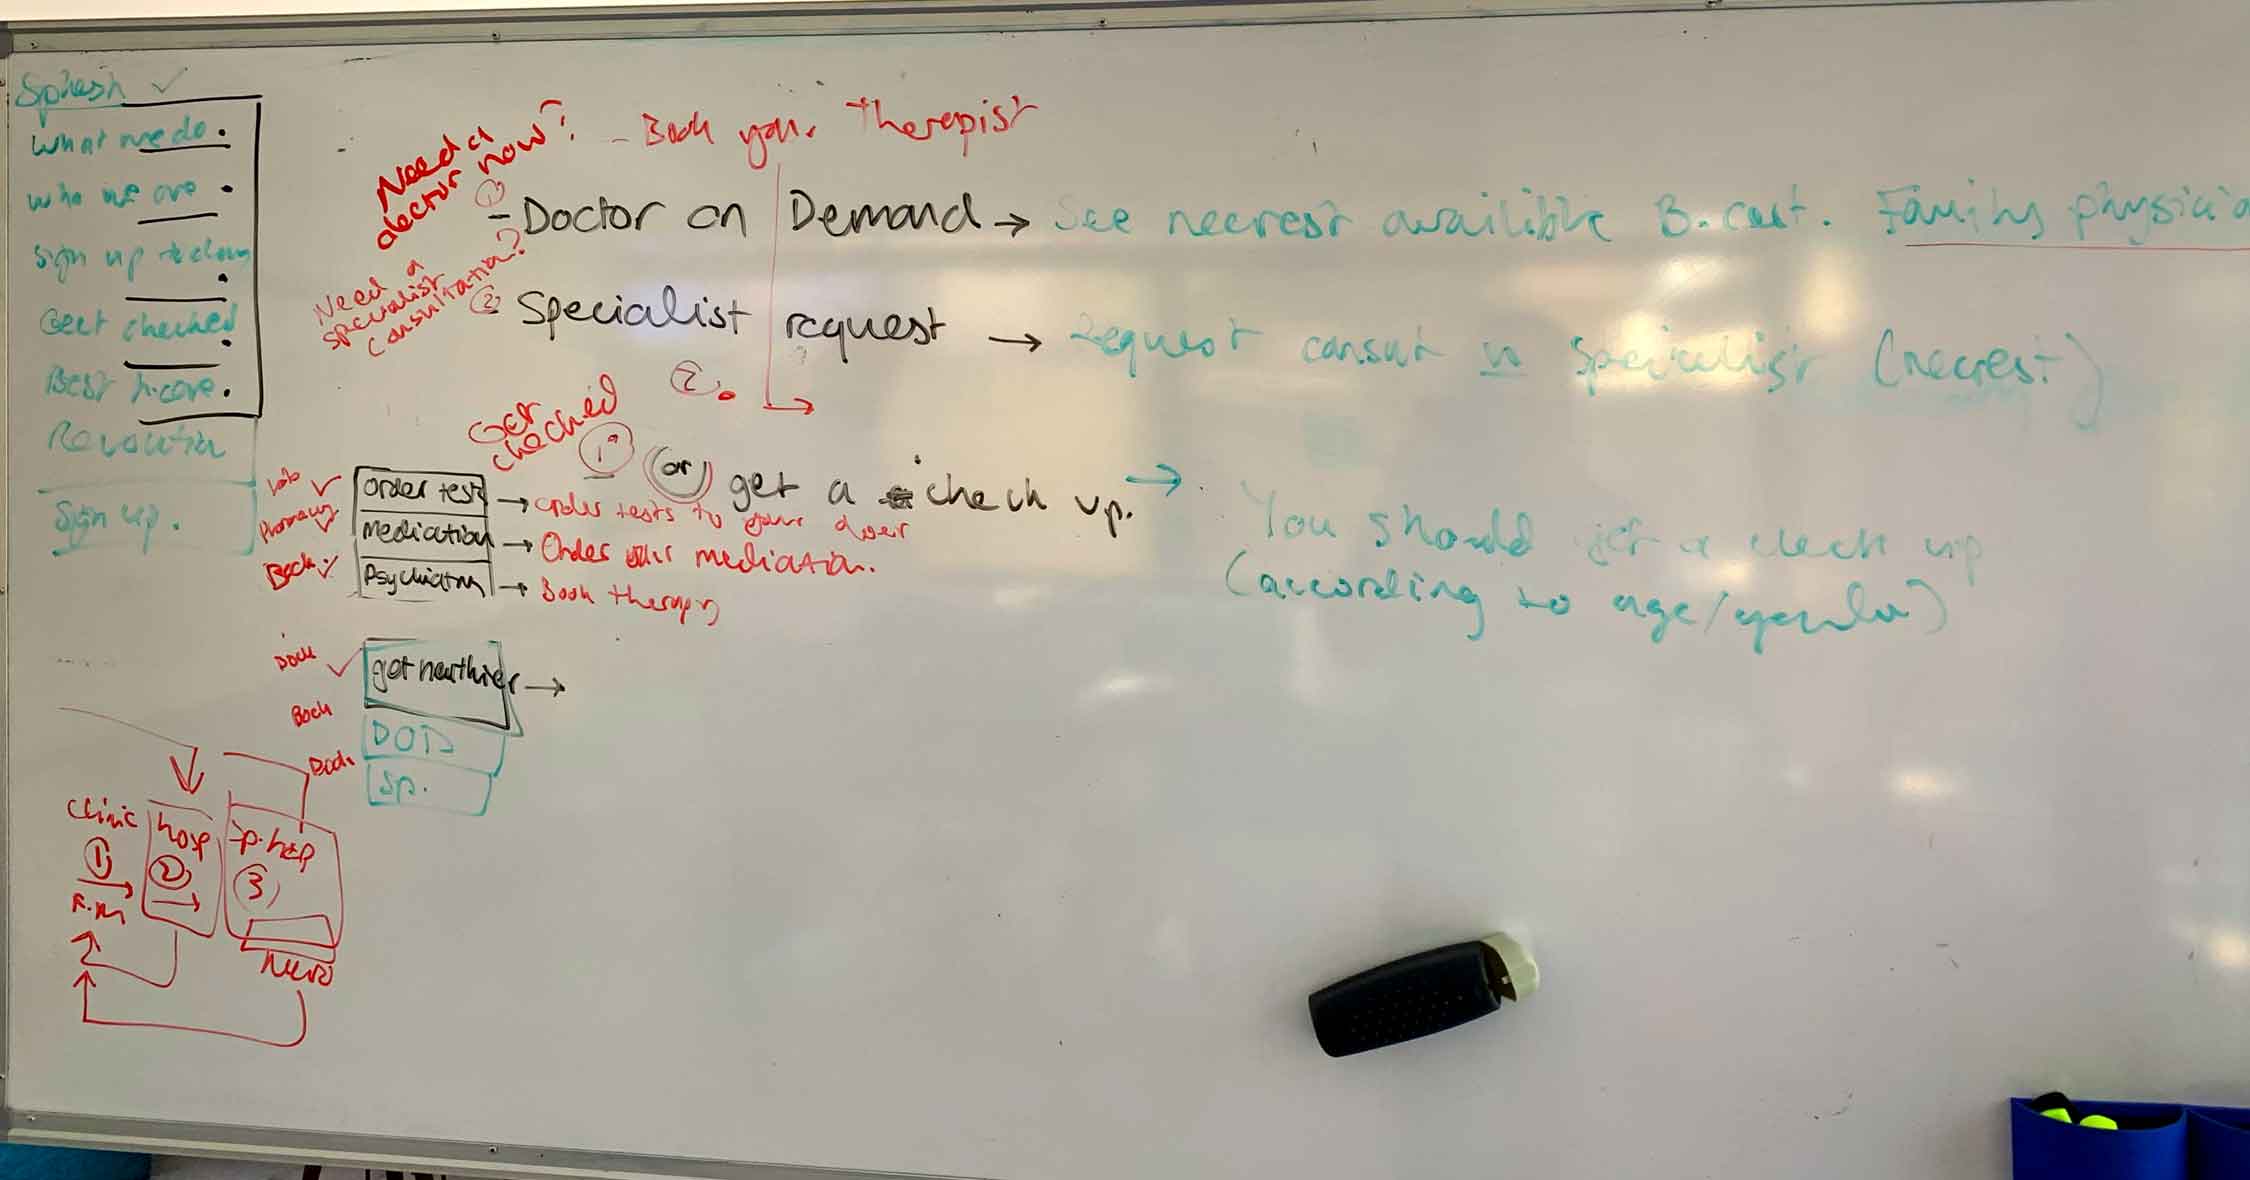 Splash ✓
What we do.
Who we are.
Sign up today
Get checked.
Best h.care.
Revolution
Sign up.
Need a
doctor now?
- Book your Therapist
①
- Doctor on Demand → See nearest available B. cert. Family physicia
Need a
specialist
consultation?
② Specialist request → Request consult w specialist (nearest)
②.
Get
checked
① (or) get a check up. →
You should get a check up
(according to age/gender)
Lab ✓ Order test → order tests to your door
Pharmacy ✓ Medication → Order your medication.
Book ✓ Psychiatry → Book therapy
Book ✓ get healthier →
Book DOD
Book Sp.
Clinic
①
hosp
②
③